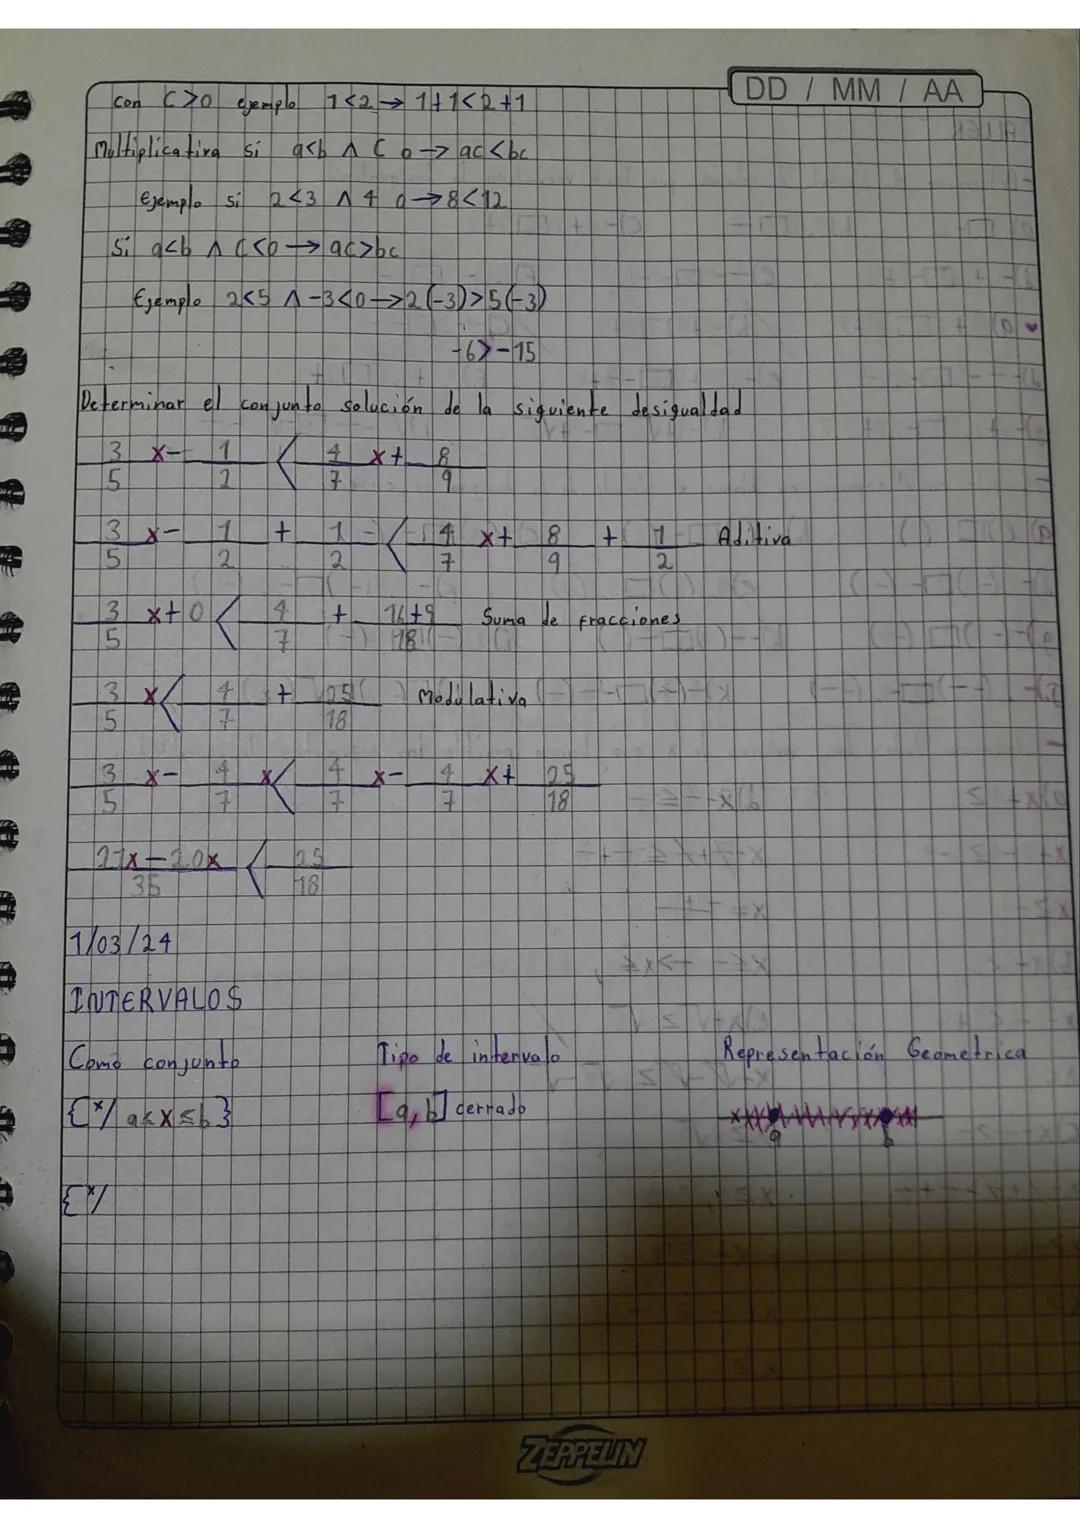 DD / MM / AA
con C>0 ejemplo 1<2→ 1+1<2+1
Multiplicativa si a<b ∧ C o→ ac<bc
Ejemplo si 2<3 ∧ 4 0→8<12
Si a<b ∧ C<0→ ac>bc
Ejemplo 2<5 ∧ -3<0→2(-3)>5(-3)
-6>-15
Determinar el conjunto solución de la siguiente desigualdad
3/5 x- 1/2 < 4/7 x+ 8/9
3/5 x- 1/2 + 1/2 < 4/7 x+ 8/9 + 1/2 Aditiva
3/5 x+0 < 4/7 + 16+9/18 Suma de fracciones
3/5 x< 4/7 + 25/18 Modulativa
3/5 x- 4/7 x< 4/7 x- 4/7 x+ 25/18
21x-20x/35 < 25/18
1/03/24
INTERVALOS
Como conjunto Tipo de intervalo Representación Geometrica
{x/ a≤x≤b} [a,b] cerrado
a b
{x/
ZEPPELIN